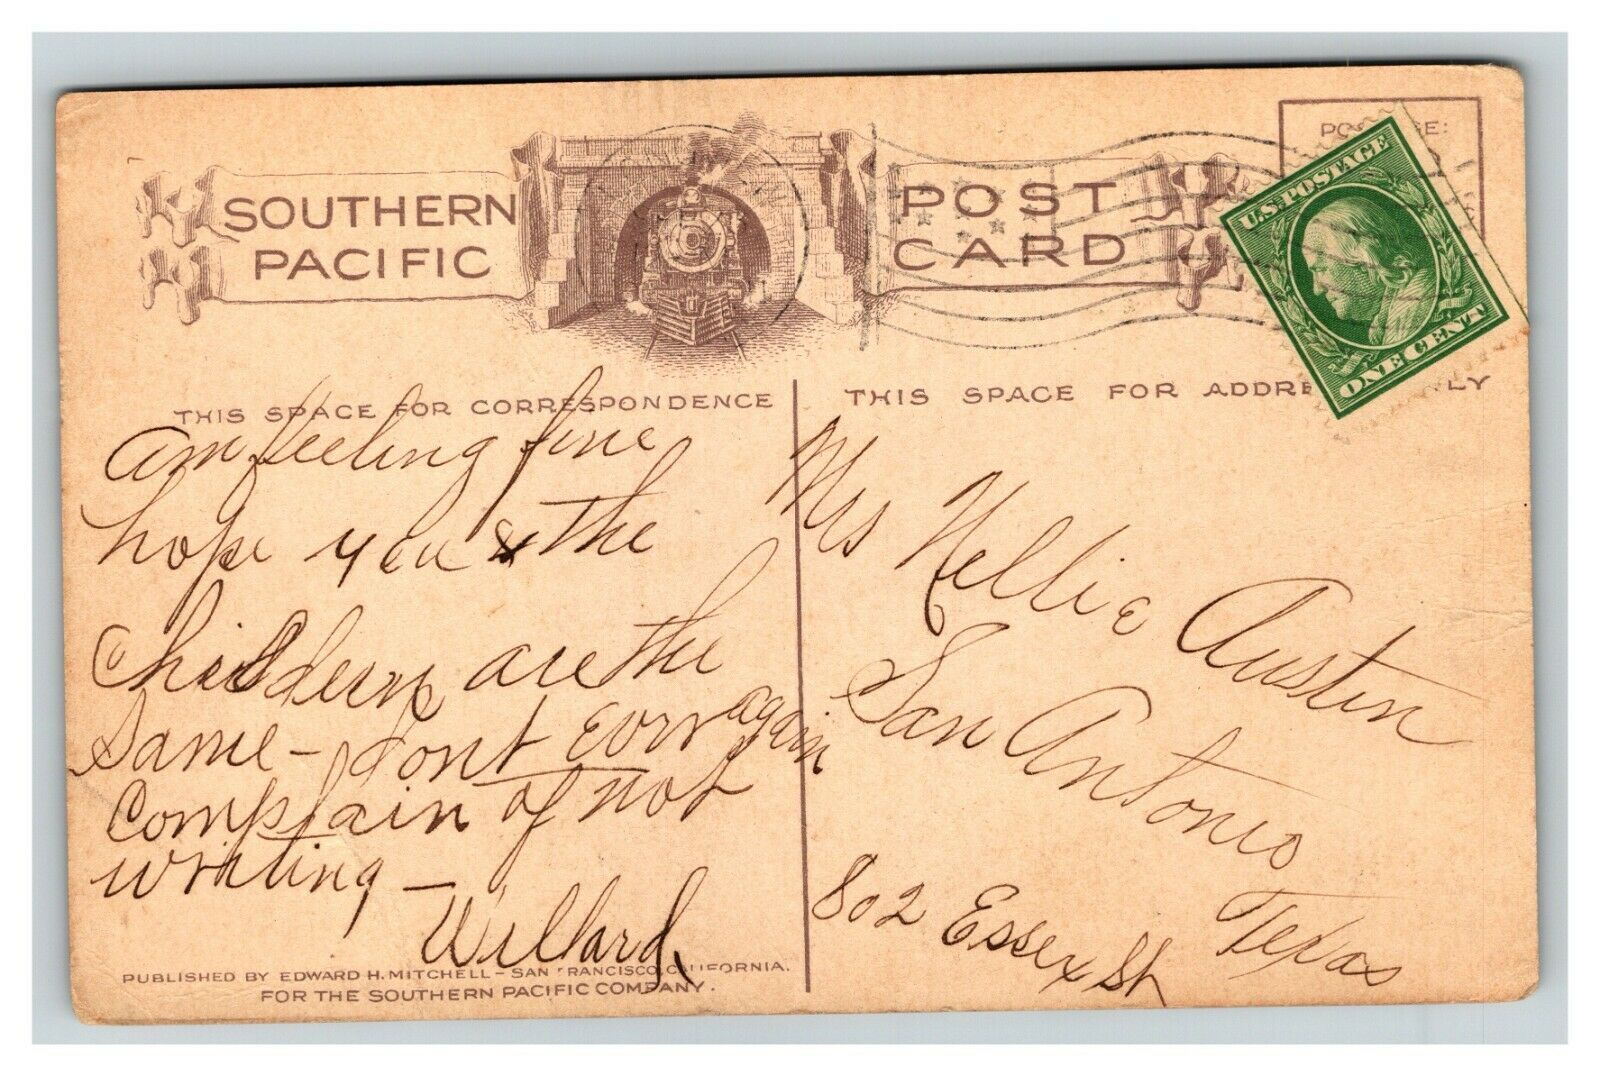 SOUTHERN
PACIFIC
POST
CARD
U.S. POSTAGE
ONE CENT
THIS SPACE FOR CORRESPONDENCE
am feeling fine
hope you & the
Childern are the
Same - dont
again
Complain of not
writing -
Willard
PUBLISHED BY EDWARD H. MITCHELL - SAN FRANCISCO, CALIFORNIA.
FOR THE SOUTHERN PACIFIC COMPANY.
THIS SPACE FOR
Mrs Nellie Austin
San Antonio
Texas
802 Essex St